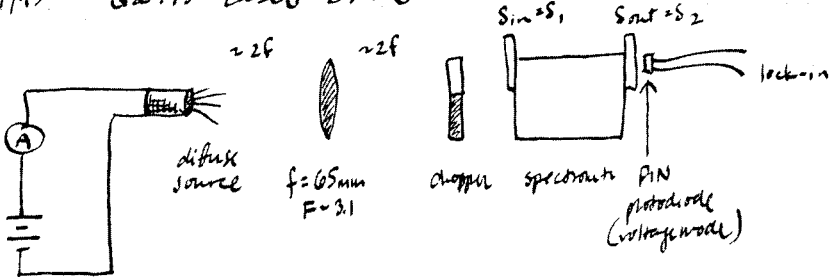 ~2f
~2f
Sin=S1
Sout=S2
lock-in
A
diffuse
source
f=65mm
F~3.1
chopper
PIN
photodiode
(voltage mode)